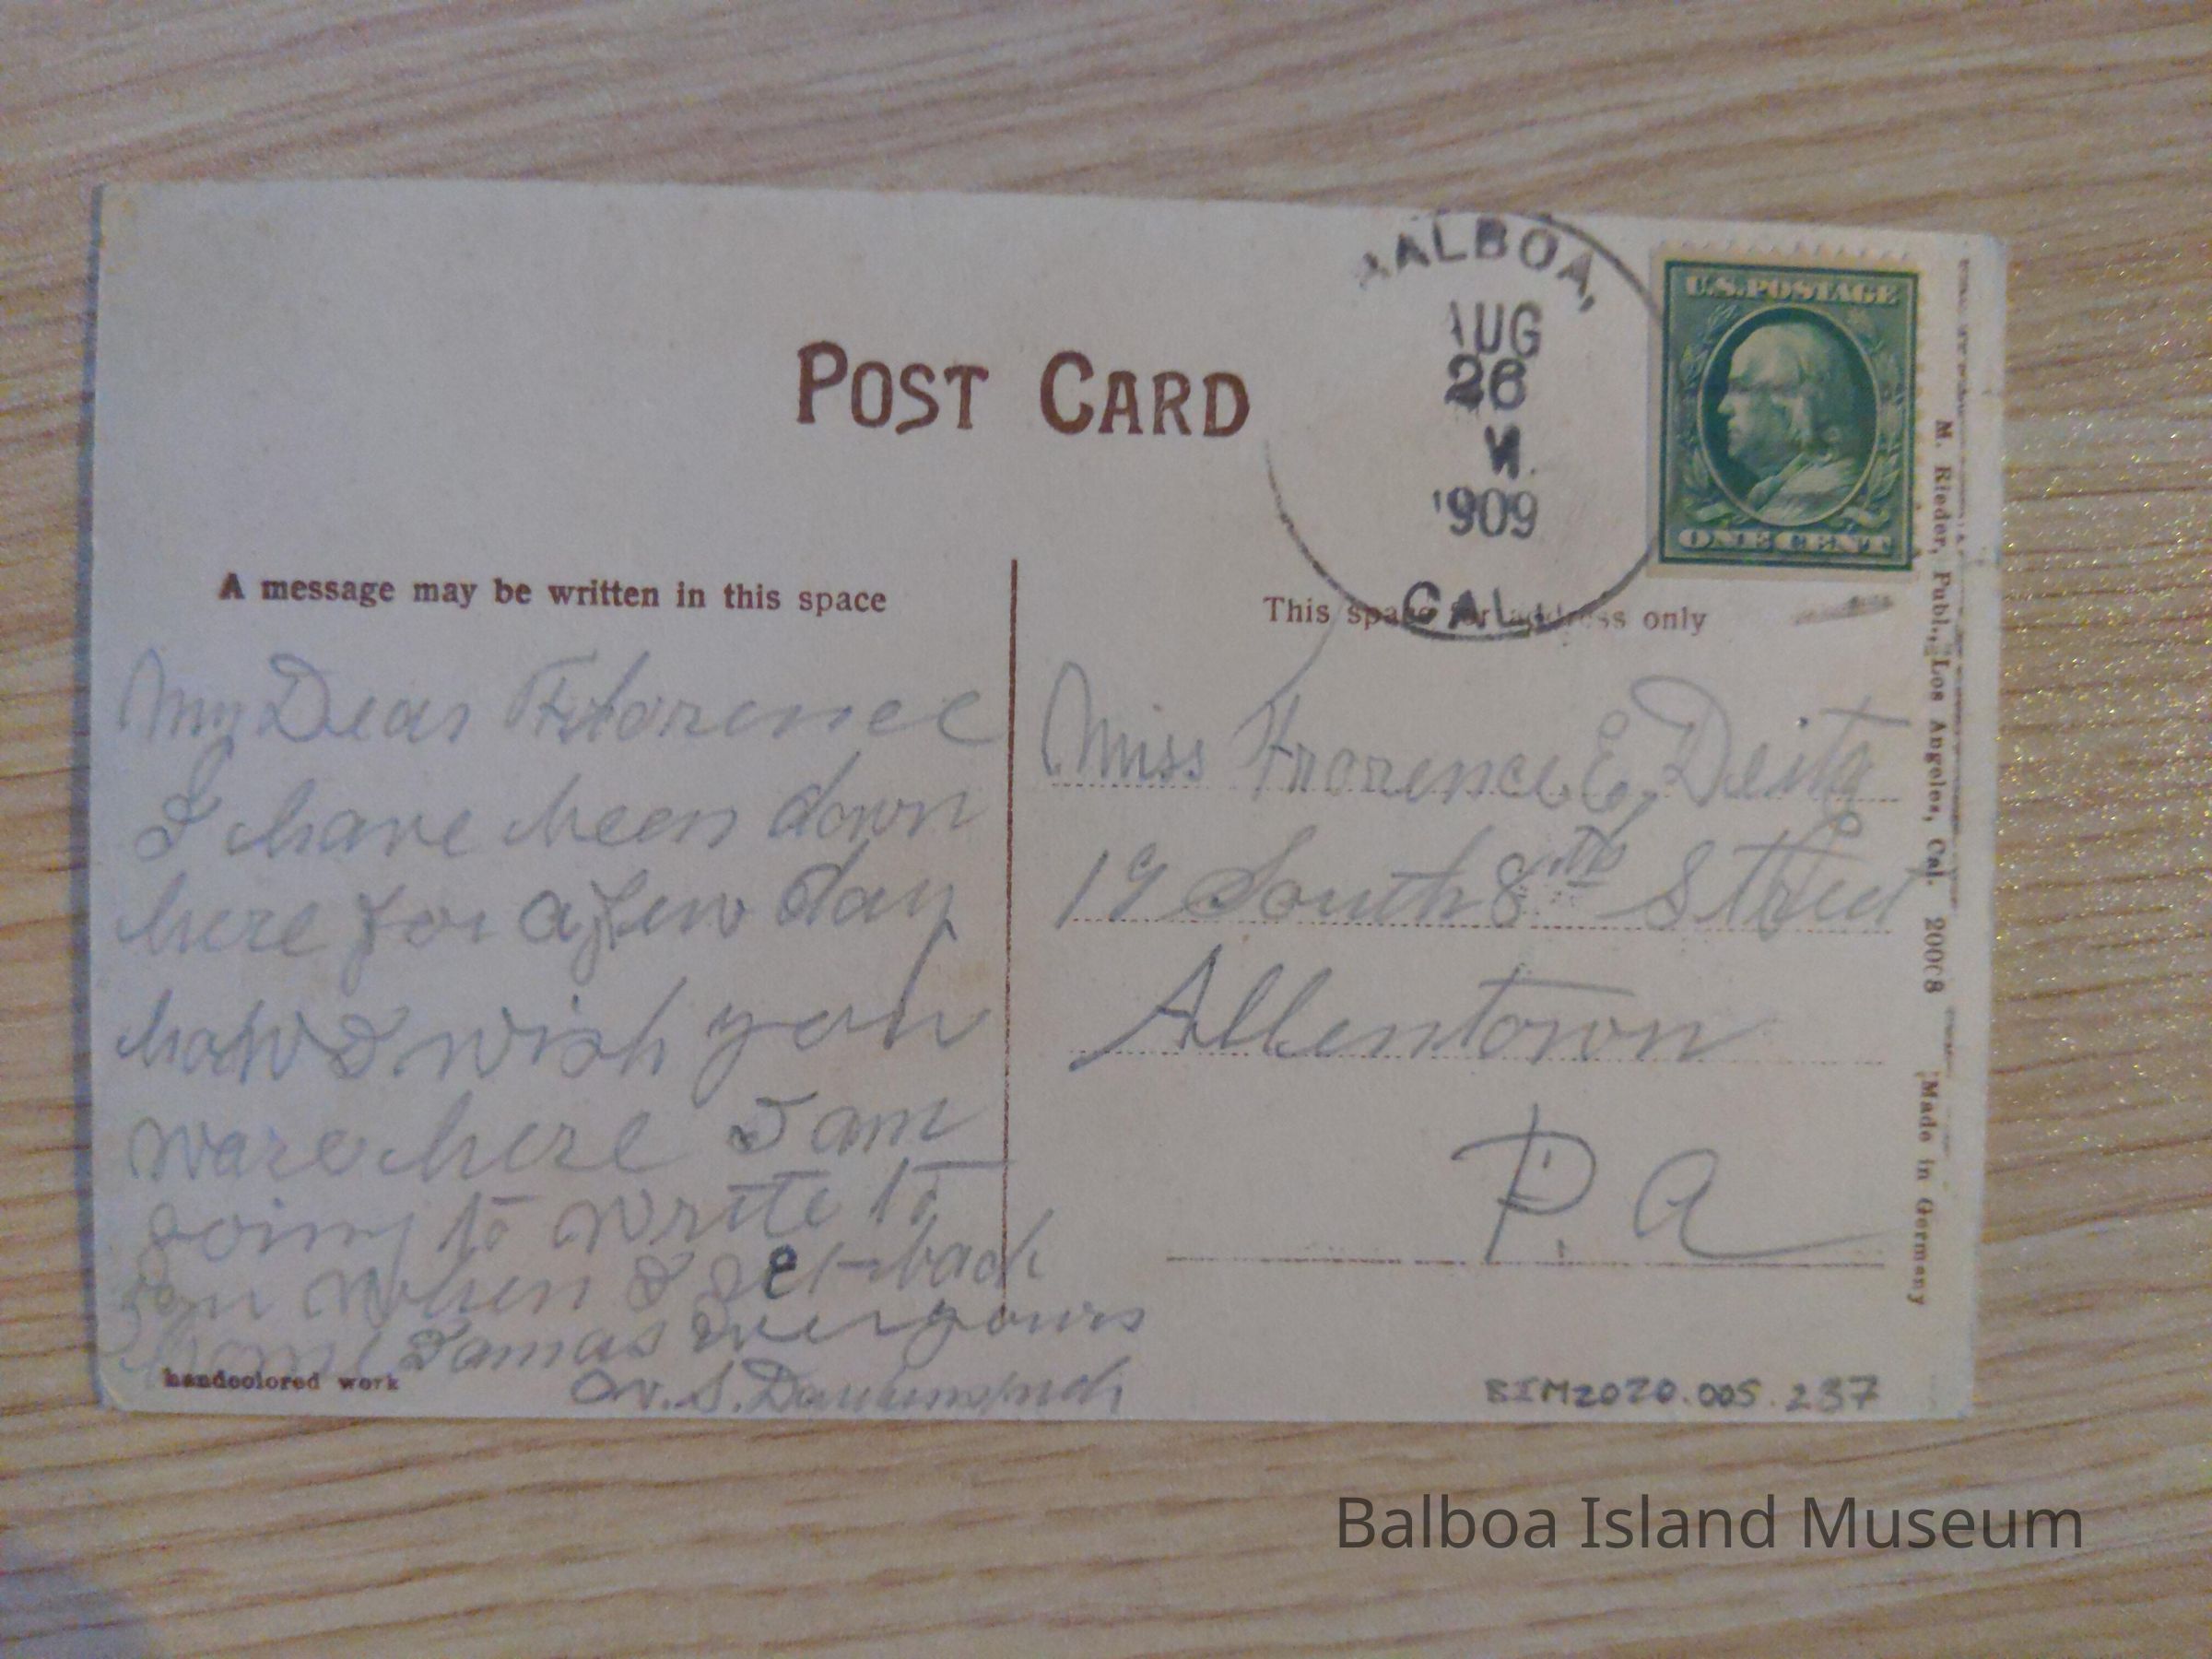 POST CARD
BALBOA,
AUG
26
M.
1909
CAL.
U.S. POSTAGE
ONE CENT
A message may be written in this space
This space for address only
My Dear Florence
I have been down
here for a few day
how I wish you
ware here I am
going to write to
you when I get back
home I am as ever yours
S.
Miss Florence E. Deitz
19 South 8th Street
Allentown
P.a
M. Rieder, Publ., Los Angeles, Cal. 20008 Made in Germany
handcolored work
BIM2020.005.237
Balboa Island Museum